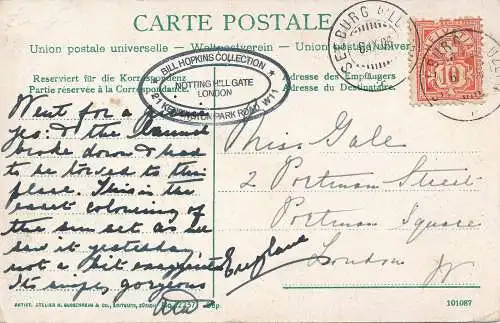 CARTE POSTALE
Union postale universelle — Weltpostverein — Unione postale universale
Reserviert für die Korrespondenz
Partie réservée à la Correspondance.
Adresse des Empfängers
Adresse du Destinataire.
BILL HOPKINS COLLECTION
NOTTING HILL GATE
LONDON
21 KENSINGTON PARK ROAD, W11
10
Went for a
yes: & the launch
broke down & had
to be towed to this
place. This is the
exact colouring of
the sun set as we
saw it yesterday
not a bit exaggerated
Its simply gorgeous
Miss Gale
2 Portman Street
Portman Square
London
W
England
101087